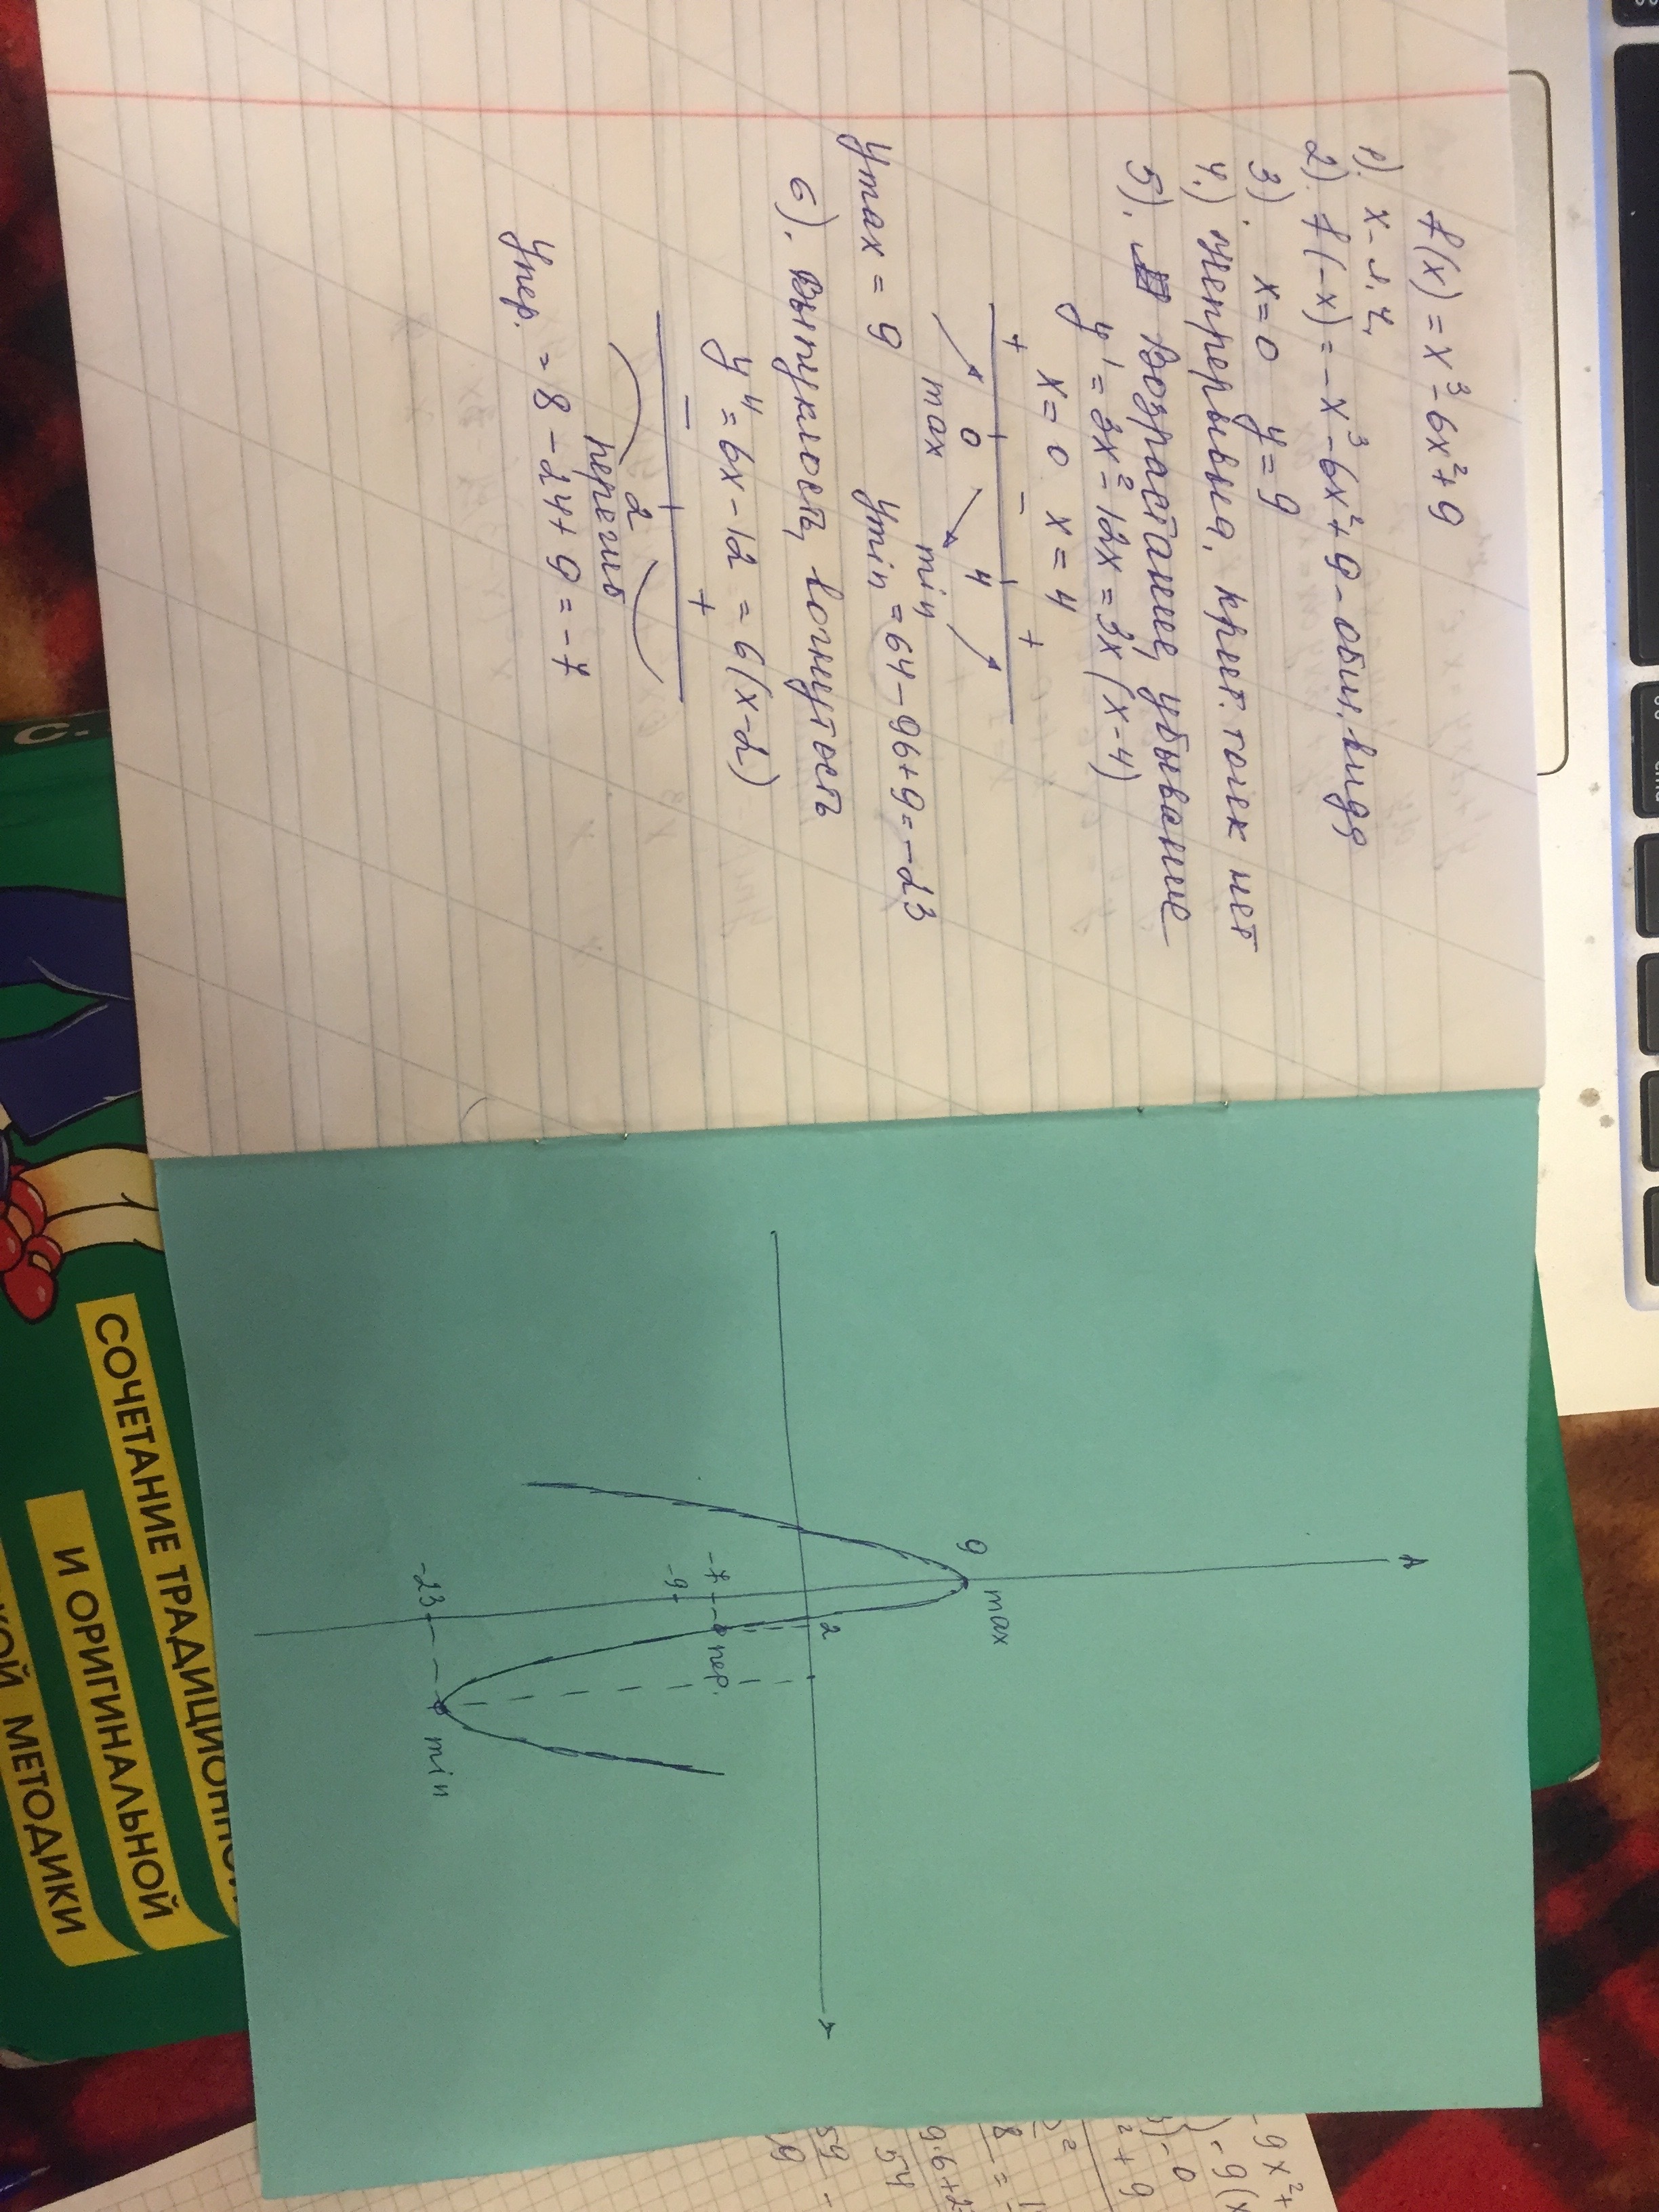 f(x) = x³ - 6x² + 9
1). x - л. ч.
2). f(-x) = -x³ - 6x² + 9 - общ. вида
3). x = 0 y = 9
4.) Непрерывна, крит. точек нет
5). Возрастание, убывание
y' = 3x² - 12x = 3x(x-4)
x = 0 x = 4
+ - +
0 4
max min
y max = 9 y min = 64 - 96 + 9 = -23
6). Выпуклость, вогнутость
y" = 6x - 12 = 6(x-2)
- +
2
перегиб
y пер. = 8 - 24 + 9 = -7
9 max
2
-7 пер.
-9
-23 min
С.
СОЧЕТАНИЕ ТРАДИЦИОННОЙ
И ОРИГИНАЛЬНОЙ
МЕТОДИКИ
- 9x² +
- 9(x
- 0
² + 9
8 =
9·6+2
54
59 -